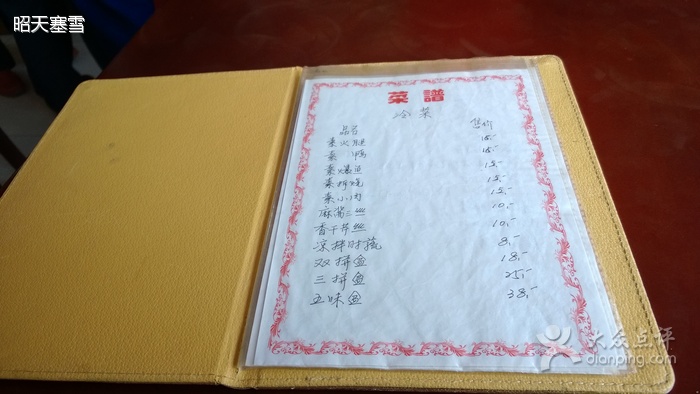 昭天塞雪
菜譜
冷菜
品名 售价
素火腿 15,-
素鸭 15,-
素爆鱼 15,-
素桥烧 15,-
素小肉 15,-
麻酱三丝 10,-
香干芹丝 10,-
凉拌时蔬 8,-
双拼盘 18,-
三拼盘 25,-
五味盘 38,-
大众点评
dianping.com